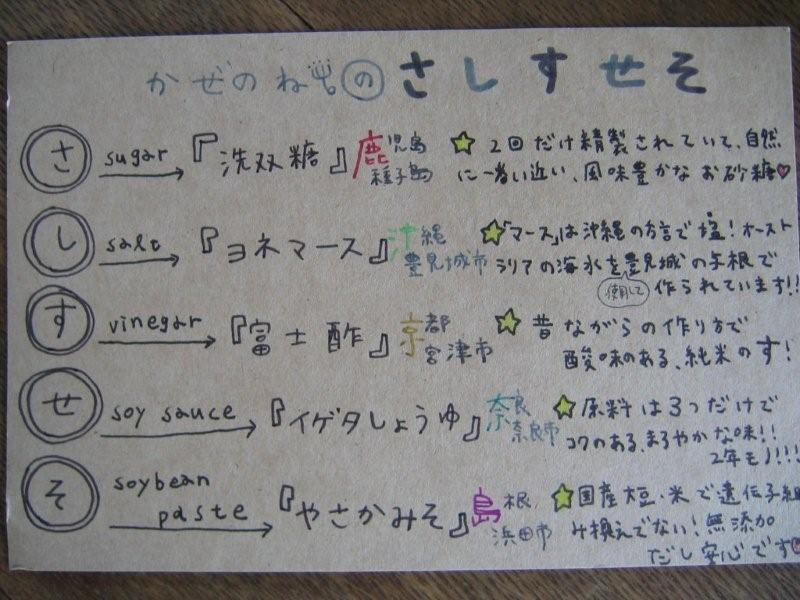 かぜのねの さしすせそ
さ sugar 『洗双糖』 鹿児島 種子島 ☆2回だけ精製されていて、自然
に一番近い、風味豊かなお砂糖♡
し salt 『ヨネマース』 沖縄 豊見城市 ☆「マース」は沖縄の方言で塩!オースト
ラリアの海水を使用して豊見城の与根で
作られています!!
す vinegar 『富士酢』 京都 宮津市 ☆昔ながらの作り方で
酸味のある、純米のす!
せ soy sauce 『イゲタしょうゆ』 奈良 奈良市 ☆原料は3つだけで
コクのある、まろやかな味!!
2年モノ!!!
そ soybean paste 『やさかみそ』 島根 浜田市 ☆国産大豆・米で遺伝子組
み換えでない!無添加
だし安心です